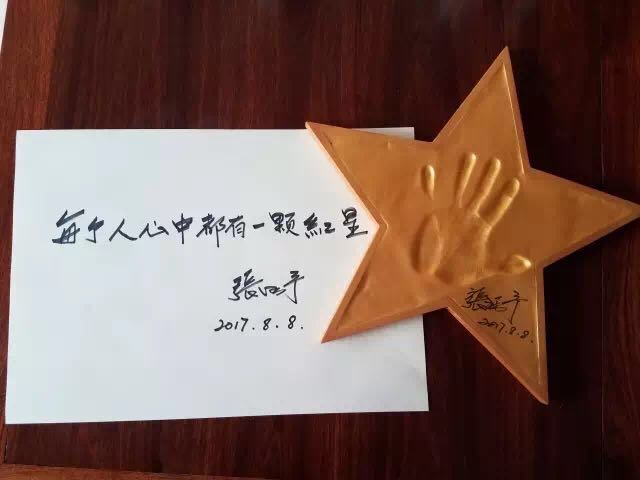 每个人心中都有一颗紅星
張 平
2017.8.8.
張 平
2017.8.8.